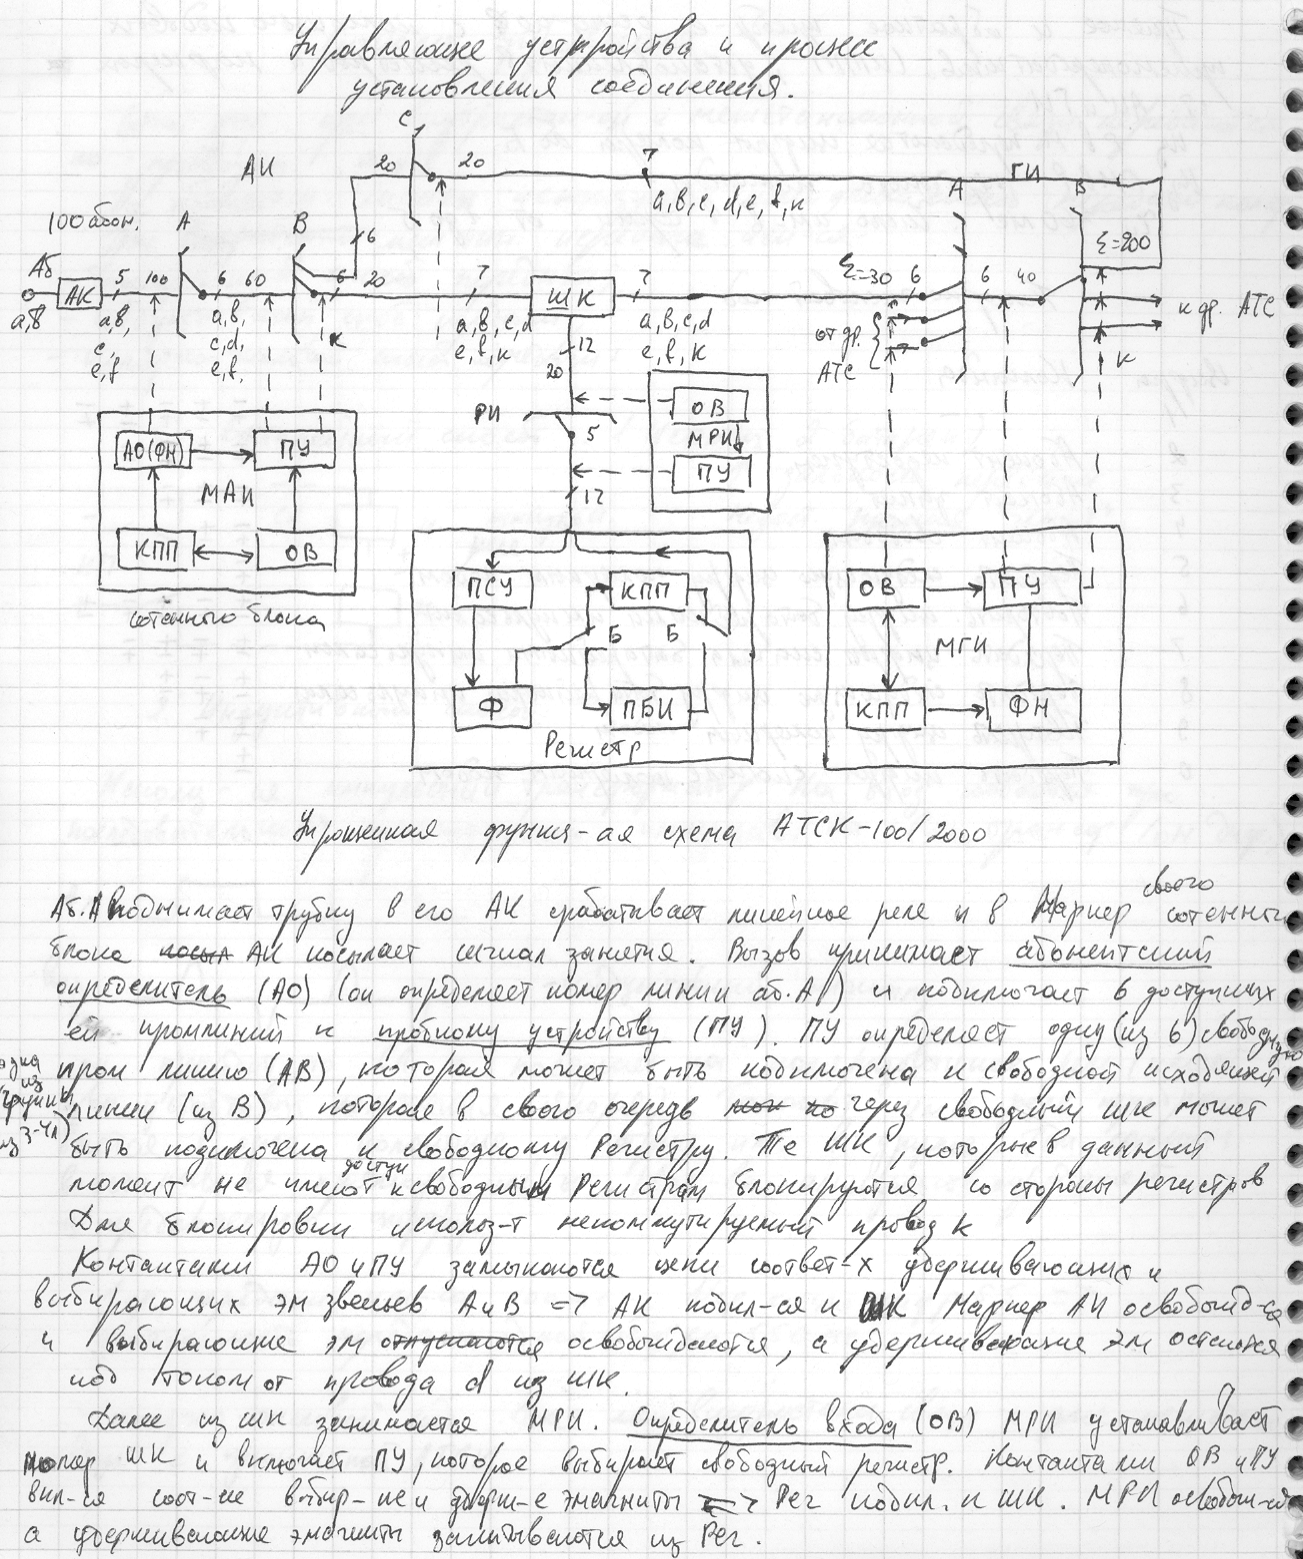 Управляющие устройства и процесс
установления соединения.
С
АИ 20 20 7 ГИ
a, b, c, d, e, f, к
А В
100 абон. А В
6 Σ=200
Аб АК 5 100 6 60 6 20 7 ШК 7 Σ=30 6 6 40
а, в a, b, c, e, f a, b, c, d, e, f. к a, b, c, d e, f, к a, b, c, d e, f, к
от др. АТС
к др. АТС
к
12
20
РИ 5
12
ОВ
МРИ
ПУ
АО(ФН) ПУ
МАИ
КПП ОВ
сотенного блока
ПСУ КПП
Б Б
Ф ПБИ
Регистр
ОВ ПУ
МГИ
КПП ФН
Упрощенная функц-ая схема АТСК-100/2000
Аб. А поднимает трубку в его АК срабатывает линейное реле и в Маркер своего сотенного
блока посыл АК посылает сигнал занятия. Вызов принимает абонентский
определитель (АО) (он определяет номер линии аб. А) и подключает 6 доступных
ей промлиний к пробному устройству (ПУ). ПУ определяет одну (из 6) свободную
пром линию (АВ), которая может быть подключена к свободной исходящей
одна из группы из 3-4л)
линии (из В), которая в свою очередь через свободный ШК может
быть подключена к свободному Регистру. Те ШК, которые в данный
момент не имеют доступ к свободным Регистрам блокируются со стороны регистров
Для блокировки использ-т некоммутируемый провод к
Контактами АО и ПУ замыкаются цепи соответ-х удерживающих и
выбирающих эм звеньев А и В => АК подкл-ся к ШК Маркер АИ освобожд-ся
и выбирающие эм отпускаются освобождаются, а удерживающие эм остаются
под током от провода d из ШК.
Далее из ШК занимается МРИ. Определитель входа (ОВ) МРИ устанавливает
номер ШК и включает ПУ, которое выбирает свободный регистр. Контактами ОВ и ПУ
вкл-ся соот-ие выбир-ие и удерж-е эмагниты => Рег подкл. к ШК. МРИ освобожд-ся
а удерживающие эмагниты запитываются из Рег.